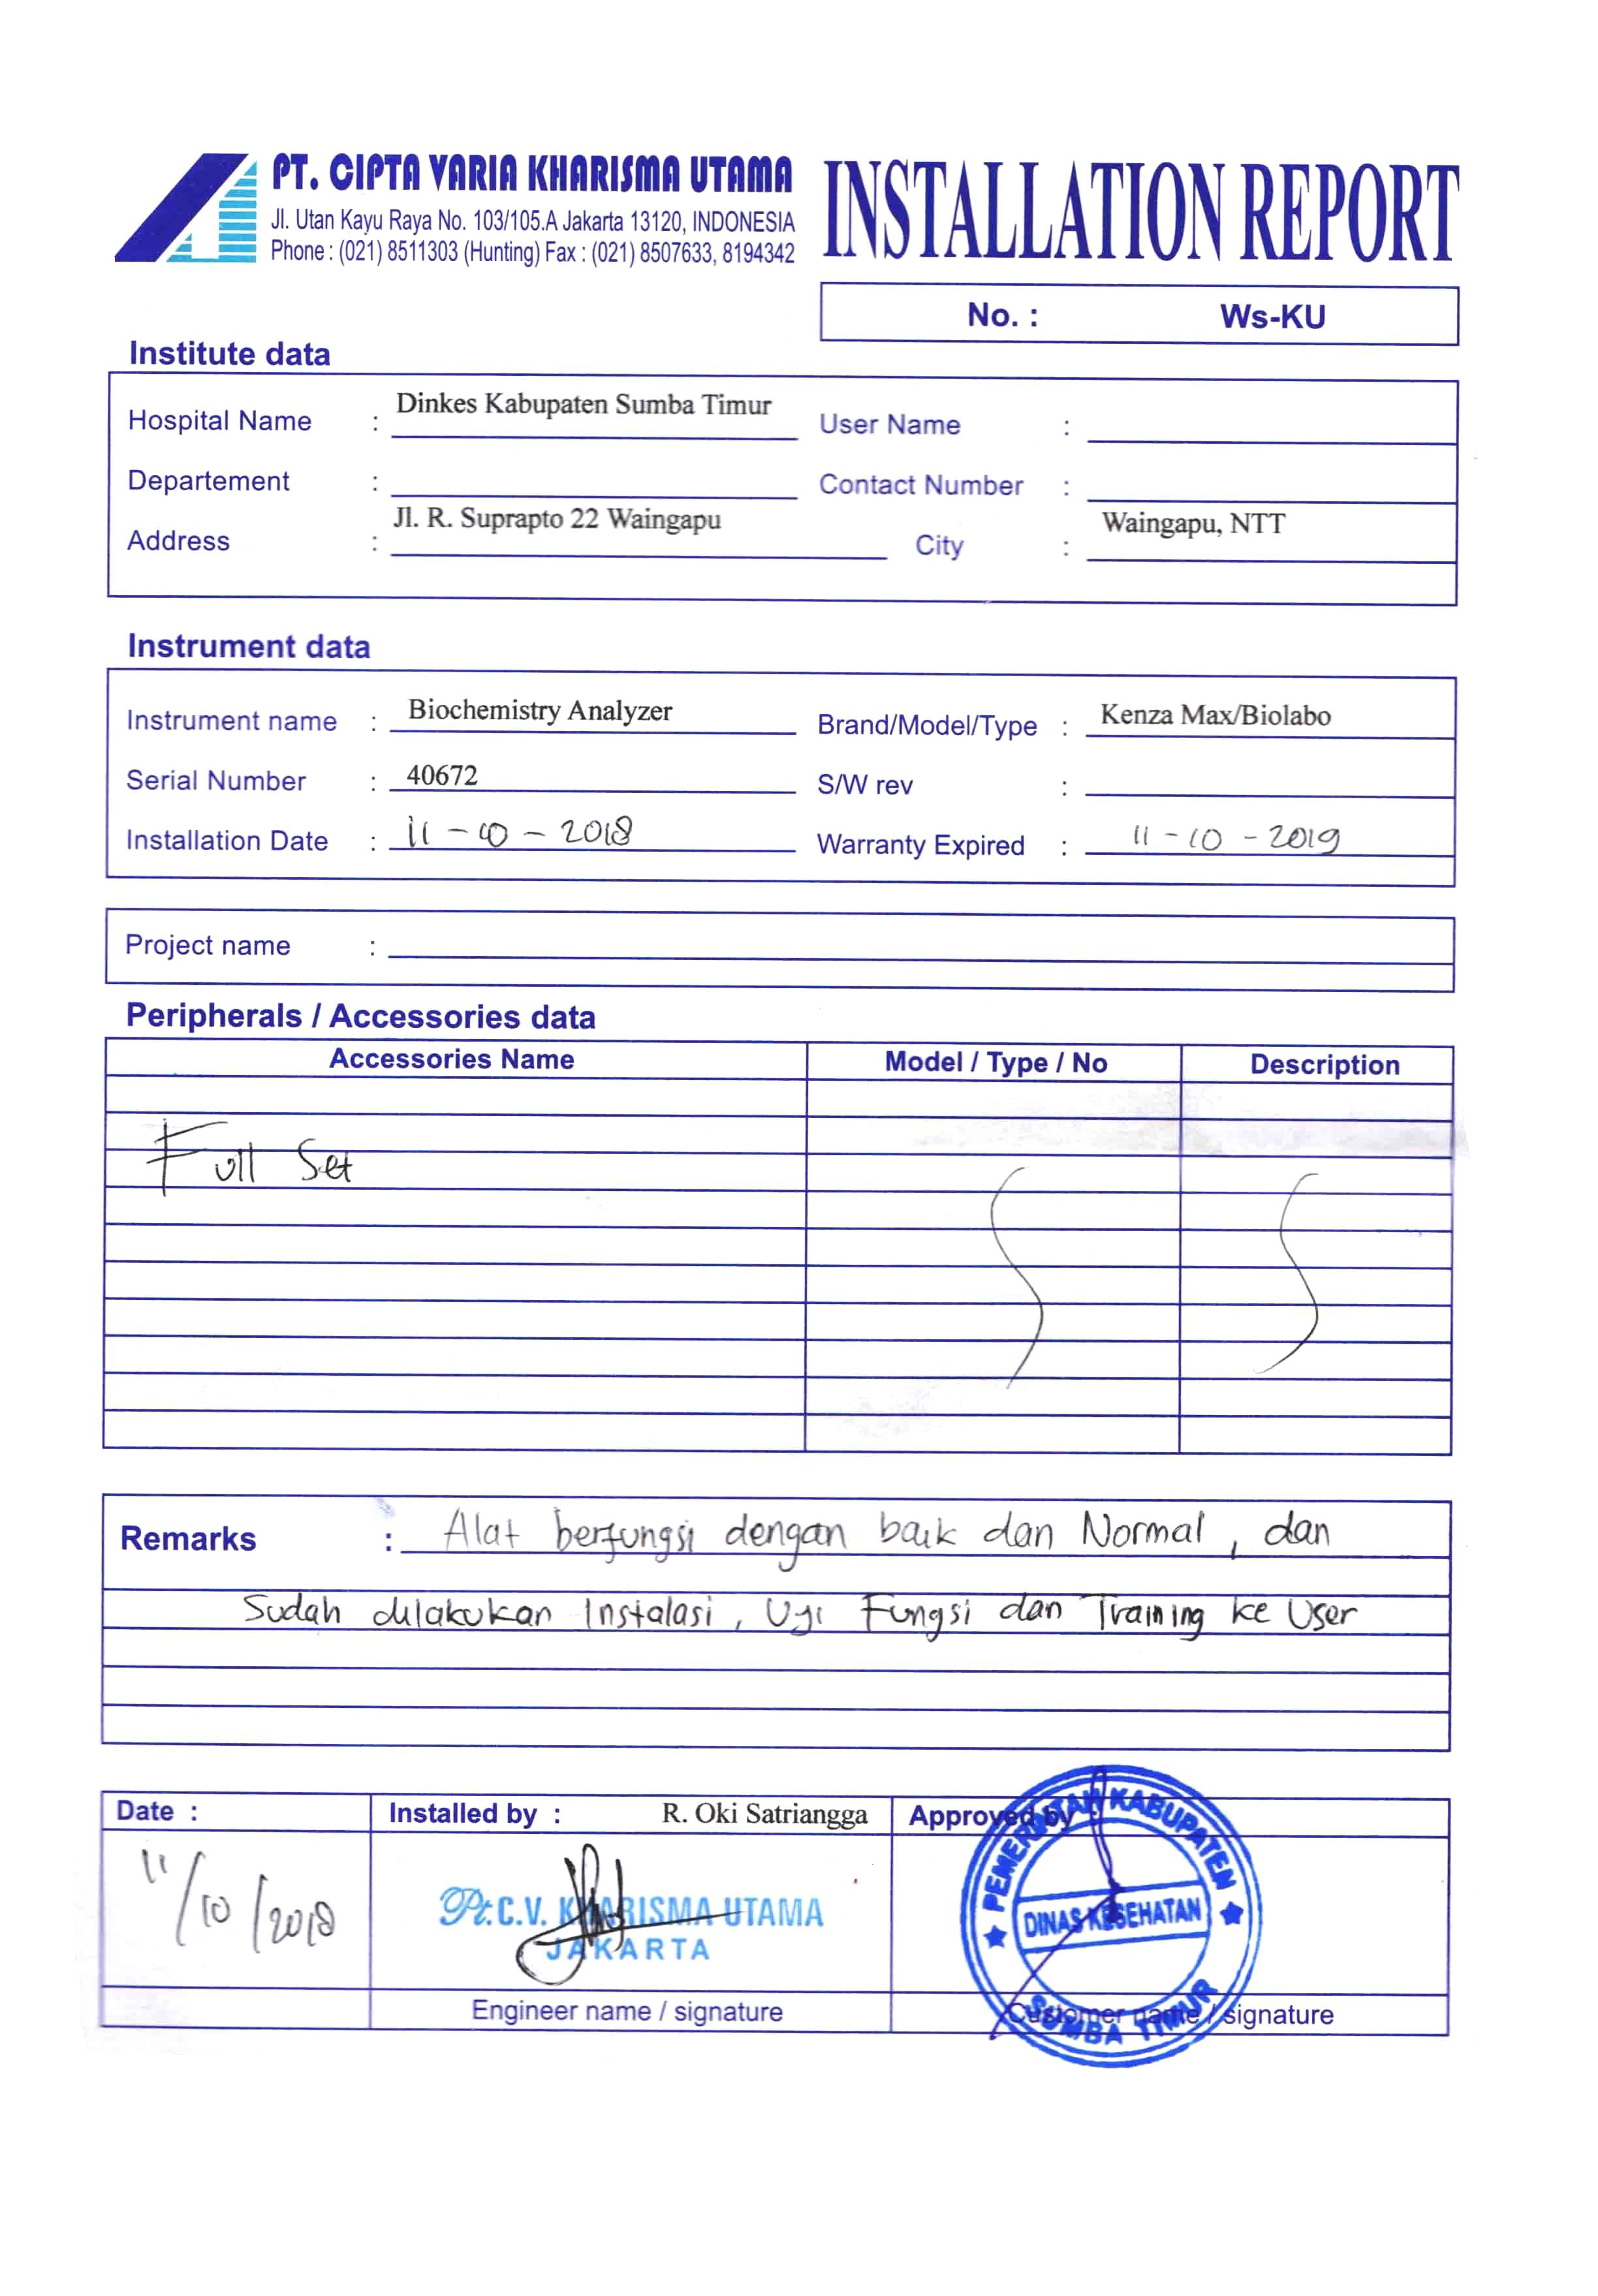 PT. CIPTA VARIA KHARISMA UTAMA
Jl. Utan Kayu Raya No. 103/105.A Jakarta 13120, INDONESIA
Phone : (021) 8511303 (Hunting) Fax : (021) 8507633, 8194342
INSTALLATION REPORT
No. : Ws-KU
Institute data
Hospital Name : Dinkes Kabupaten Sumba Timur User Name :
Departement : Contact Number :
Address : Jl. R. Suprapto 22 Waingapu City : Waingapu, NTT
Instrument data
Instrument name : Biochemistry Analyzer Brand/Model/Type : Kenza Max/Biolabo
Serial Number : 40672 S/W rev :
Installation Date : 11-10-2018 Warranty Expired : 11-10-2019
Project name :
Peripherals / Accessories data
Accessories Name Model / Type / No Description
Full Set
Remarks : Alat berfungsi dengan baik dan Normal, dan
Sudah dilakukan Instalasi, Uji Fungsi dan Training ke User
Date : Installed by : R. Oki Satriangga Approved by :
11/10/2018
Pt.C.V. KHARISMA UTAMA
JAKARTA
PEMERINTAH KABUPATEN
DINAS KESEHATAN
SUMBA TIMUR
Engineer name / signature Customer name / signature